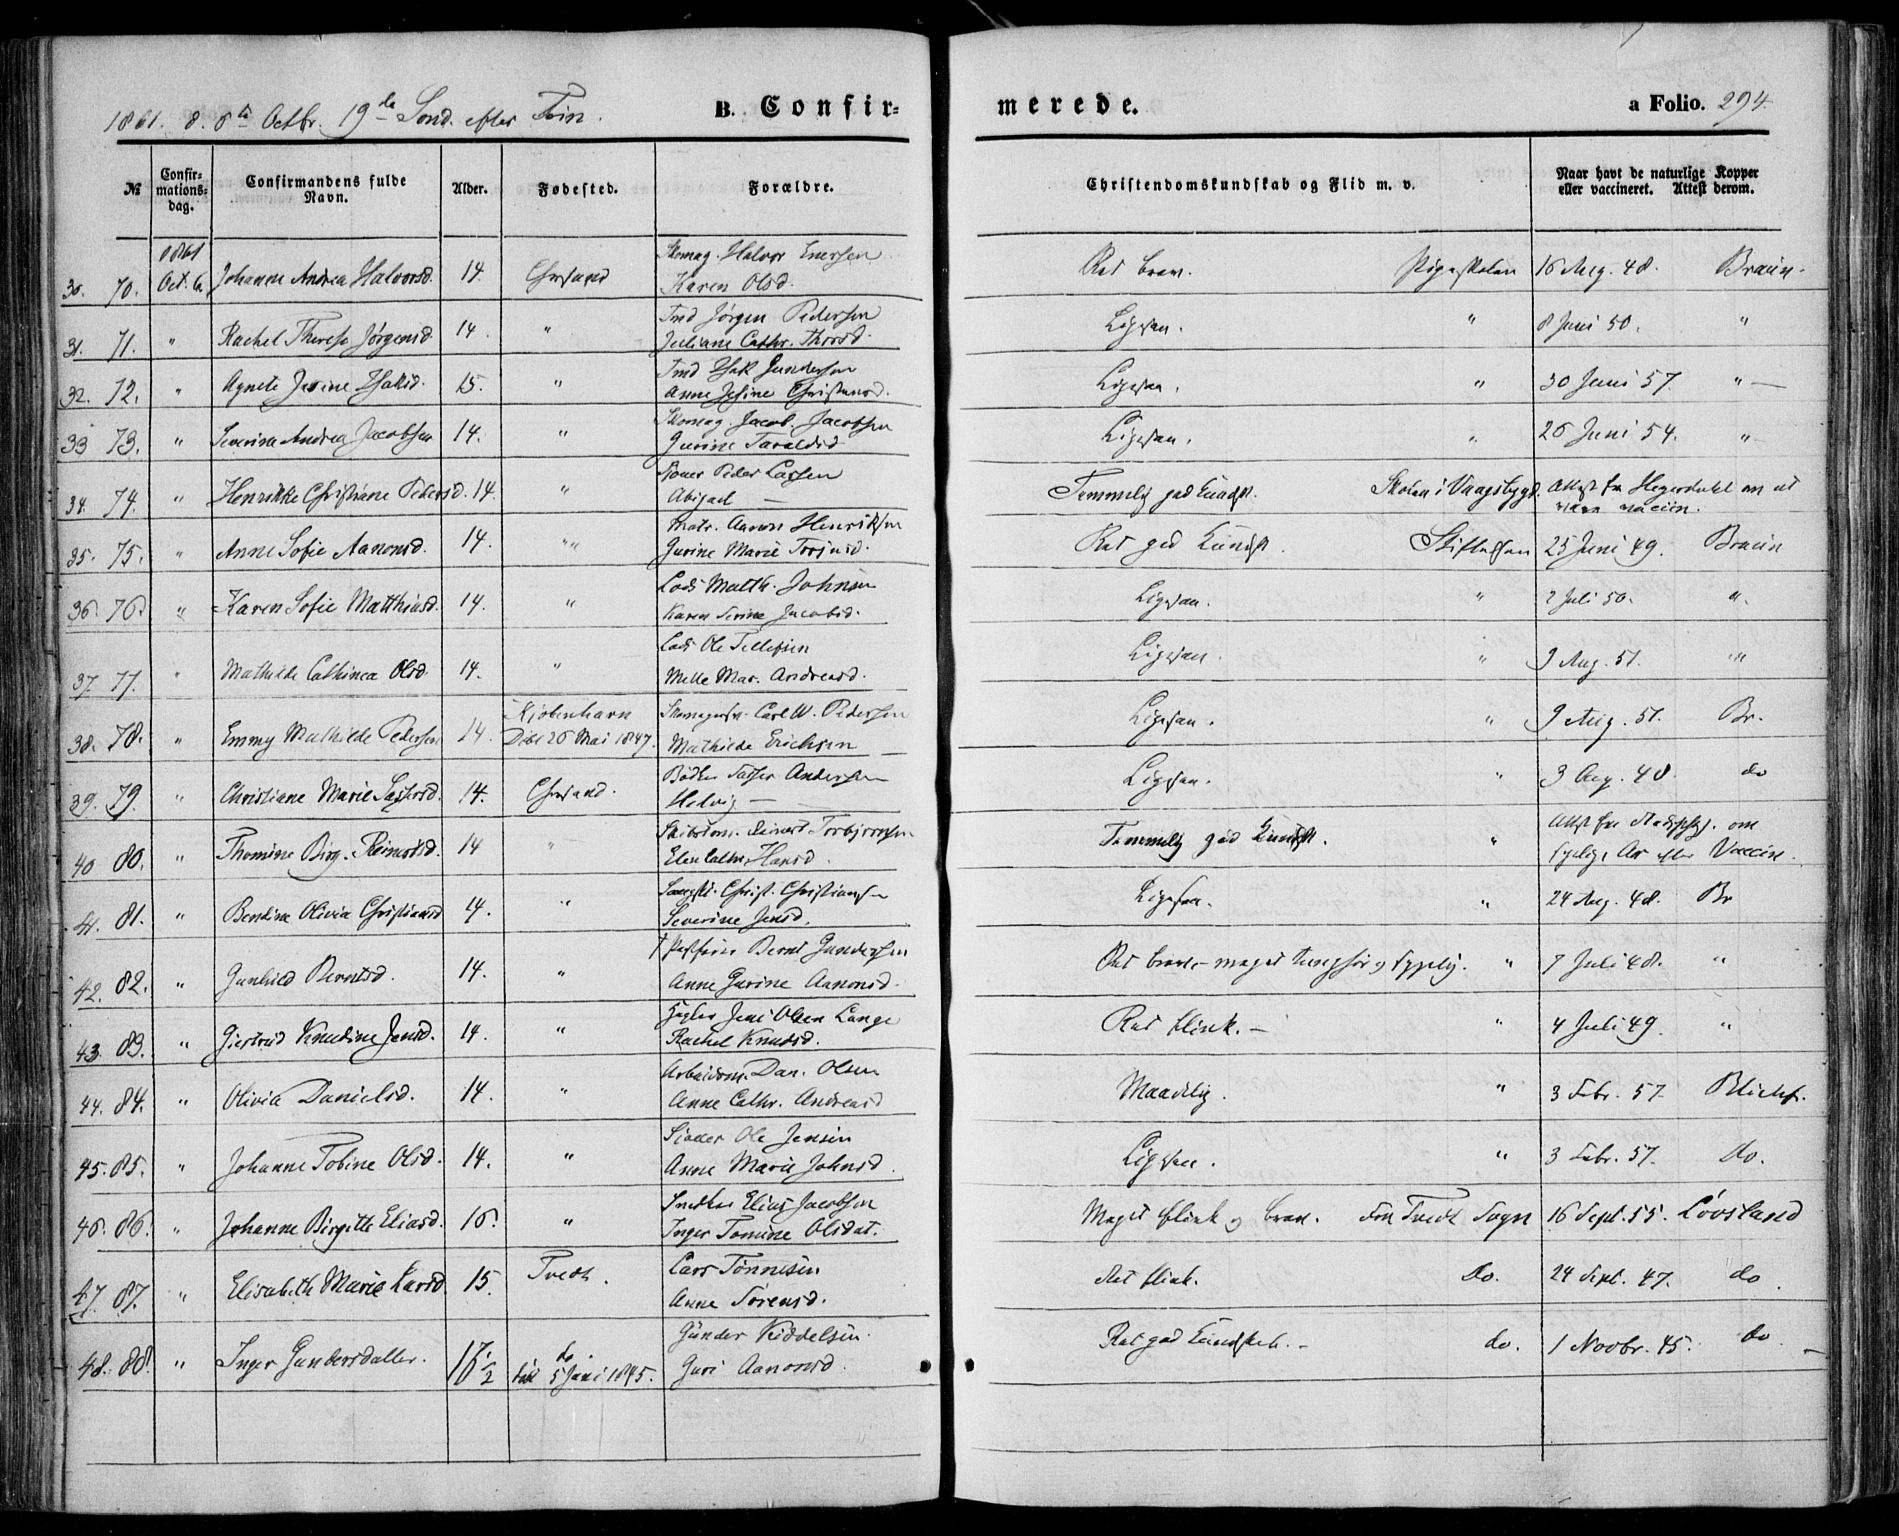 1861. d. 6te Octbr. 19de Sønd. efter Trin.
B. Confir=
merede.
a Folio. 294.
№
Confir=
mations=
dag.
Confirmandens fulde
Navn.
Alder.
Fødested.
Forældre.
Christendomskundskab og Flid m. v.
Naar havt de naturlige Kopper
eller vaccineret. Attest derom.
1861
Skomag. Halvor Enersen
30. 70. Oct. 6. Johanne Andrea Halvorsd. 14. Chrsand Karen Olsd. Ret brav. Pigeskolen 16 Aug. 48. Braun.
Tmd Jørgen Pedersen
31. 71. " Rachel Therese Jørgensd. 14. " Juliane Cathr. Thorsd. Ligesaa. " 8 Juni 50. "
Tmd Isak Gundersen
32. 72. " Agnete Jesine Isaksd. 15. " Anne Jesine Christensd. Ligesaa. " 30 Juni 57. "
Skomag. Jacob Jacobsen
33 73. " Severine Andrea Jacobsen 14. " Gurine Taraldsd. Ligesaa. " 26 Juni 54. "
Peder Larsen
34. 74. " Henrikke Christiane Pedersd. 14. " Abigael — Temmelig god Kundsk. Skolen i Vaagsbygd. Attest fra
Matr. Aanon Henriksen
35. 75. " Anne Sofie Aanonsd. 14. " Gurine Marie Torjusd. Ret god Kundsk. 25 Juni 49. Braun
Lods Matth. Johnsen
36. 76. " Karen Sofie Matthiasd. 14. " Karen Serine Jacobsd. Ligesaa. " 2 Juli 50. "
Lods Ole Tellefsen
37. 77. " Mathilde Cathinca Olsd. 14. " Mette Mar. Andreasd. Ligesaa. " 9 Aug. 51. "
Kjøbenhavn Carl W. Pedersen
38. 78. " Emmy Mathilde Pedersen 14. Døbt 26 Mai 1847. Mathilde Erichsen — Ligesaa. " 9 Aug. 51. Br.
Bødker Andersen
39. 79. " Christiane Marie 14. Chrsand. Helvig — Ligesaa. " 3 Aug. 48. do
Skibstøm. Reinert Torbjørnsen Attest fra om
40 80. " Thomine Birg. Reinertsd. 14 " Elen Cathr. Hansd. Temmelig god Kundsk. " efter Vaccin.
Christ. Christiansen
41. 81. " Bendine Olivia Christiansd 14. " Severine Jensd. Ligesaa. " 24 Aug. 48. Br
† Bernt Gundersen
42. 82. " Gunhild Berntsd. 14. " Anne Gurine Aanonsd. Ret brav – meget tunghør og sygelig. " 7 Juli 48. "
Jens Olsen Lange
43. 83. " Giertrud Knudine Jensd. 14. " Rachel Knudsd. Ret flink. — " 4 Juli 49. "
Arbeidsm. Dan. Olsen
44. 84. " Olivia Danielsd. 14. " Anne Cathr. Andreasd Maadelig. " 3 Febr. 57. Blichf.
Ole Jensen
45. 85. " Johanne Tobine Olsd. 14. " Anne Marie Johnsd. Ligesaa. " 3 Febr. 57. do.
Snedker Elias Jacobsen
46. 86. " Johanne Birgitte Eliasd. 16. " Inger Tomine Olsdat. Meget flink og brav. Fra Tvedt Sogn 16 Sept. 55. Løvsland
Lars Tønnesen
47. 87. " Elisabeth Marie Larsd 15. Tvedt. Anne Sørensd. Ret flink. do. 24 Sept. 47. do.
do. Gunder Kiddelsen
48. 88. " Inger Gundersdatter. 16 1/2 født 5 Juni 1845. Guri Aanonsd. Ret god Kundskab. — do. 1 Novbr. 45. do. —